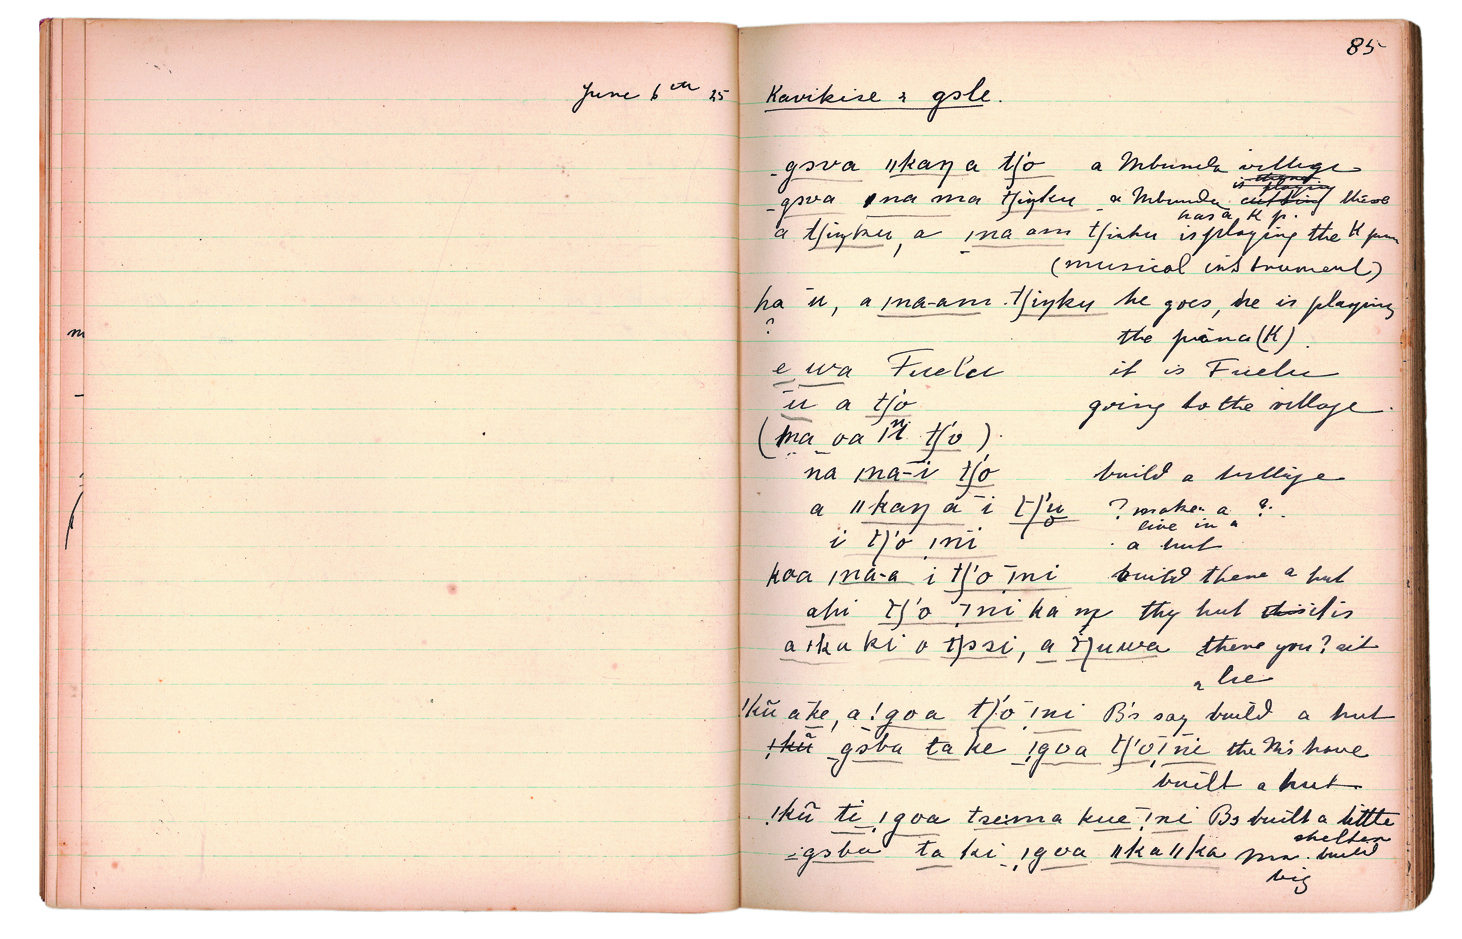 June 6th 25
85
Kavikise & gsle.
gsva ǁkaŋ a tʃo a Mbunda village
gsva ǀna ma tʃiŋku a Mbunda is playing cutting these
has a K p.
a tʃiŋku, a ǀna am tʃinku is playing the K
(musical instrument)
ha ū, a ǀna-am tʃiŋku he goes, he is playing
?
the piana (K)
e wa Fuelu it is Fuelu
ū a tʃo going to the village.
(ma oa tʃo).
na ǀna-ī tʃo build a village
a ǁkaŋ a ī tʃu ? make a ?
o live in a
i tʃ'o ǀni a hut
koa ǀna-a i tʃ'o ǀni build there a hut
ahi tʃ'o ǀni ka thy hut this it is
a ǀka ki o, a tʃuwa there you? sit
& lie
!kũ a ke, a !goa tʃ'o ǀni B's say build a hut
!kũ gsba ta ke !goa tʃ'o ǀni the M's have
built a hut
!kũ ti !goa tsema kue ǀni Bs built a little
shelter
gsba ta ki !goa ǁkaǁka Ma. build
big
m